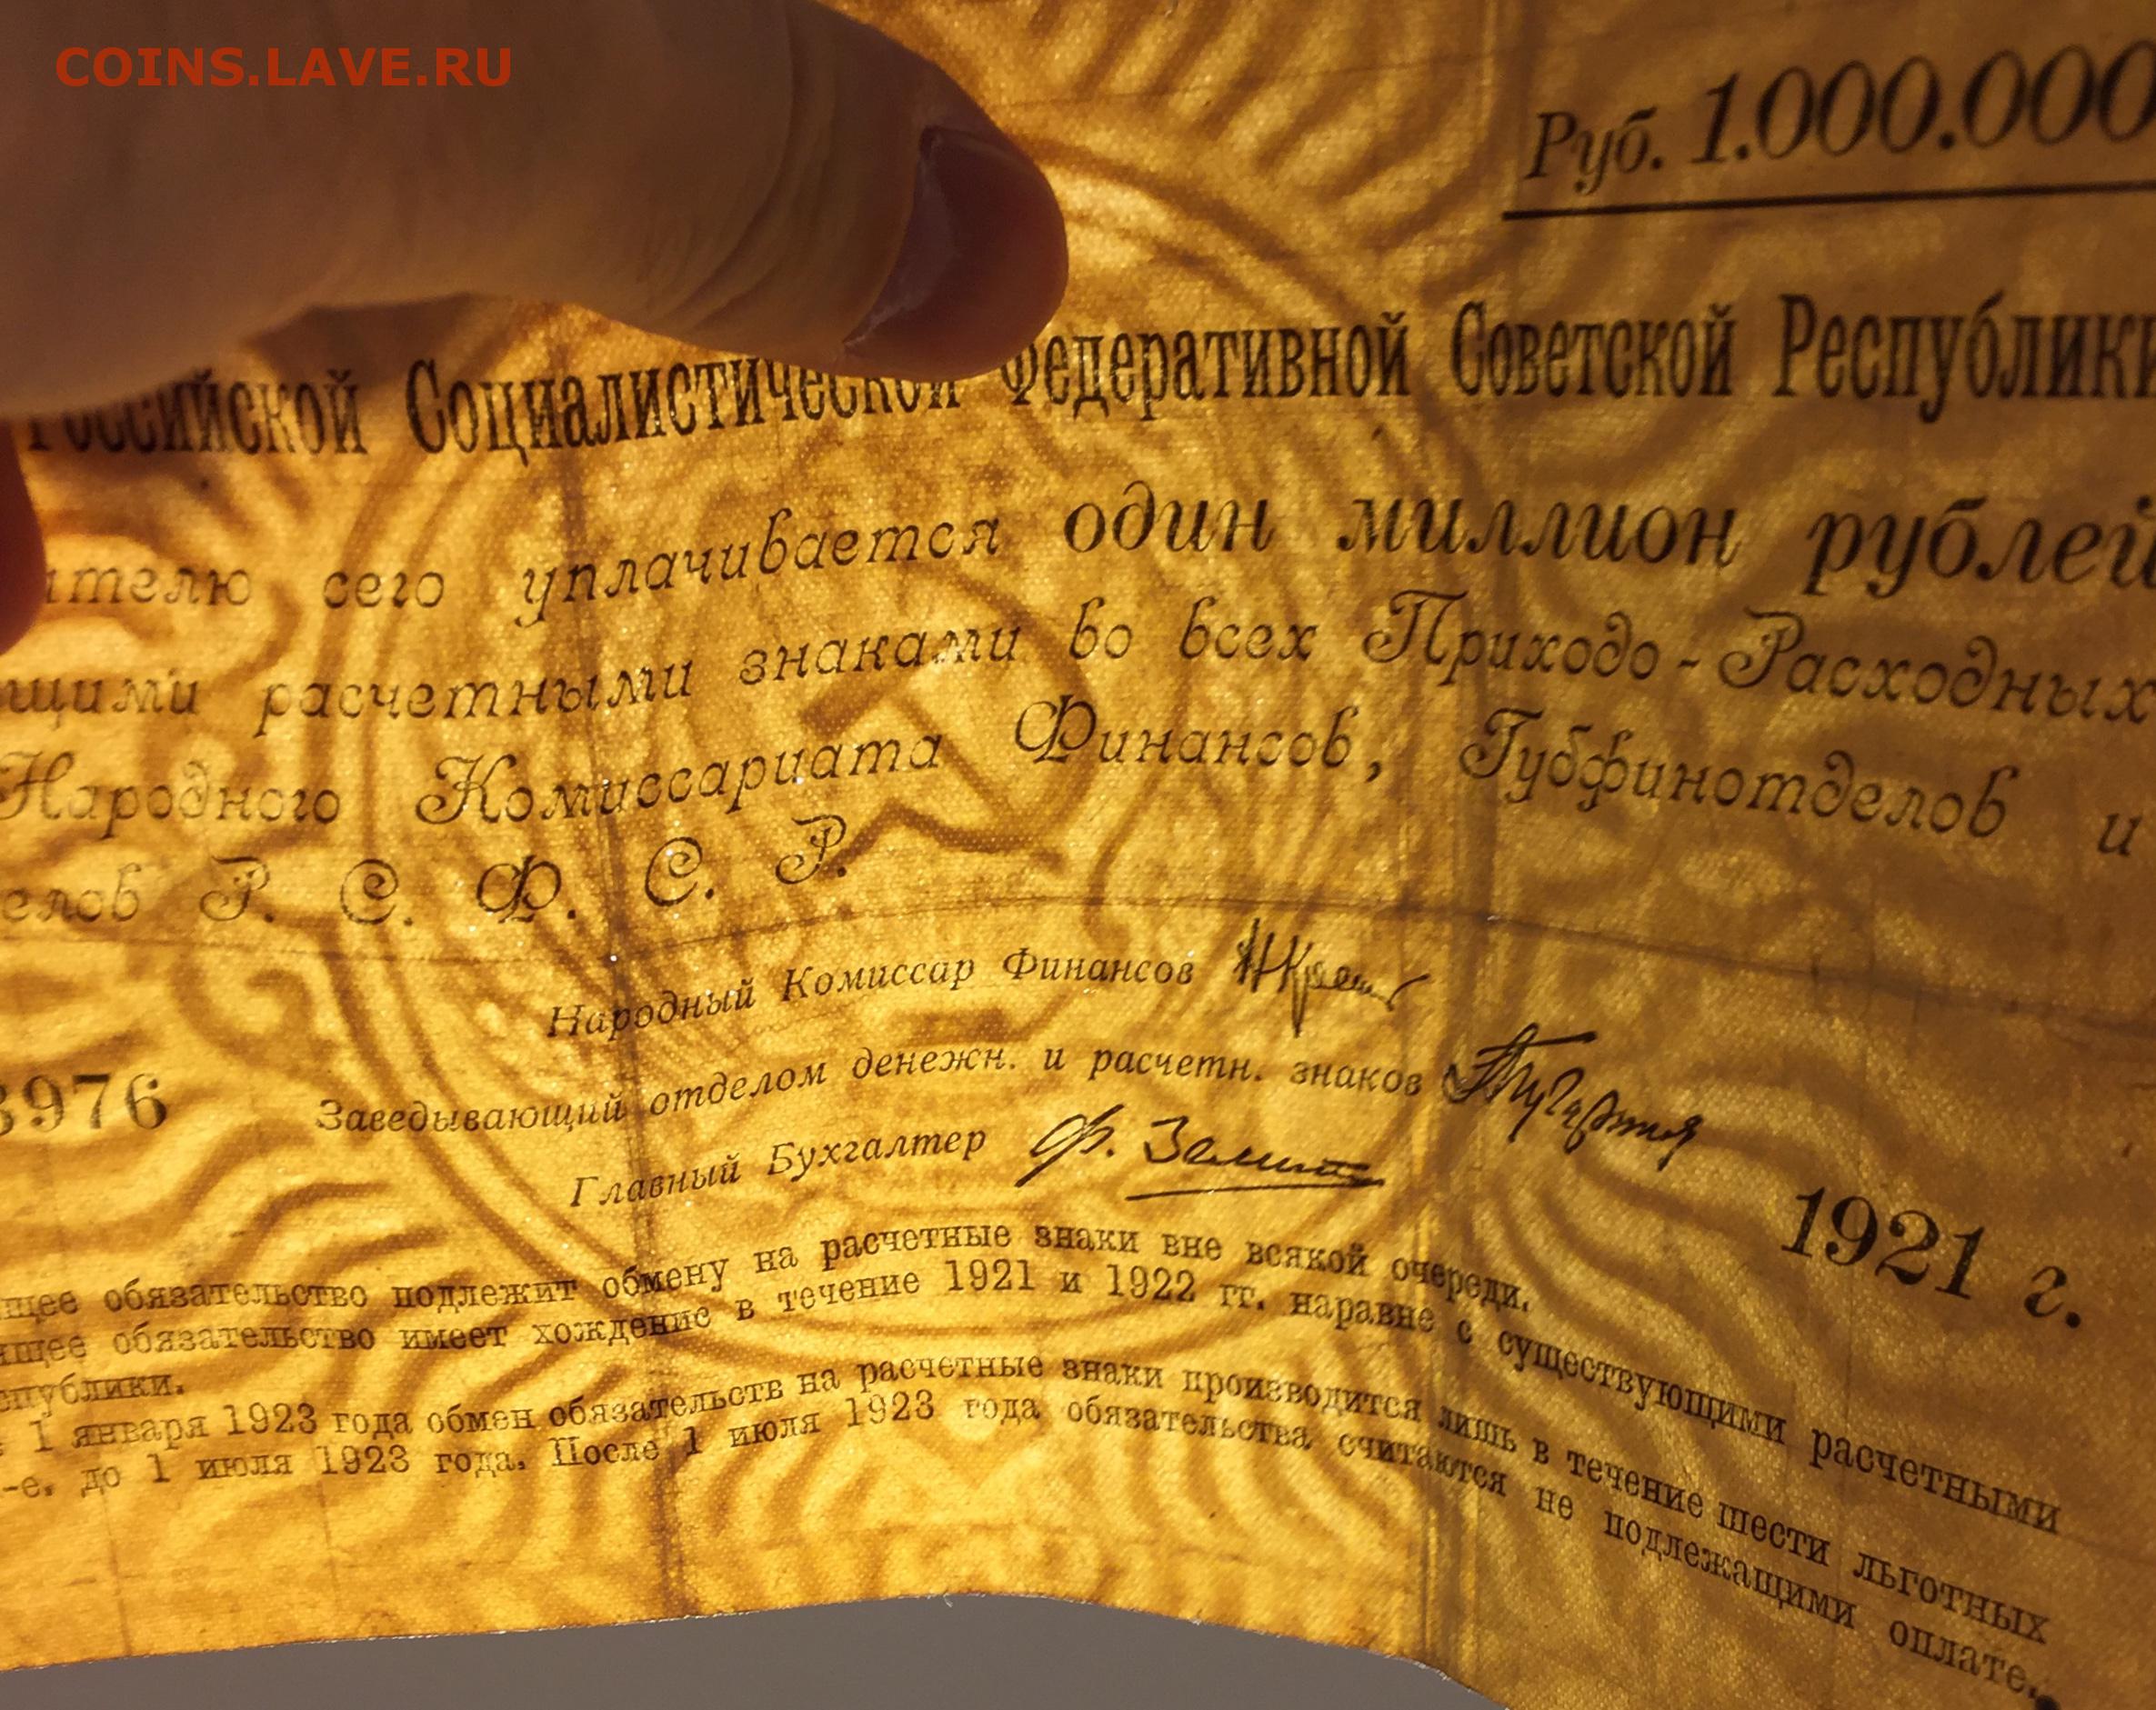 COINS.LAVE.RU
Руб. 1.000.000
Российской Социалистической Федеративной Советской Республики
ителю сего уплачивается один миллион рублей
щими расчетными знаками во всех Приходо-Расходных
Народного Комиссариата Финансов, Губфинотделов и
елов Р. С. Ф. С. Р.
Народный Комиссар Финансов
3976 Заведывающий отделом денежн. и расчетн. знаков
Главный Бухгалтер
1921 г.
щее обязательство подлежит обмену на расчетные знаки вне всякой очереди.
щее обязательство имеет хождение в течение 1921 и 1922 гг. наравне с существующими расчетными
спублики.
1 января 1923 года обмен обязательств на расчетные знаки производится лишь в течение шести льготных
-е. до 1 июля 1923 года. После 1 июля 1923 года обязательства считаются не подлежащими оплате.